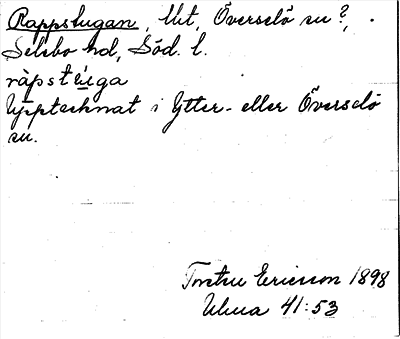 Rappstugan, Ut, Överselö sn?,
Selebo hd, Söd. l.
ràpstùga
Upptecknat i Ytter- eller Överselö
sn.
Torsten Ericsson 1898
Ulma 41:53